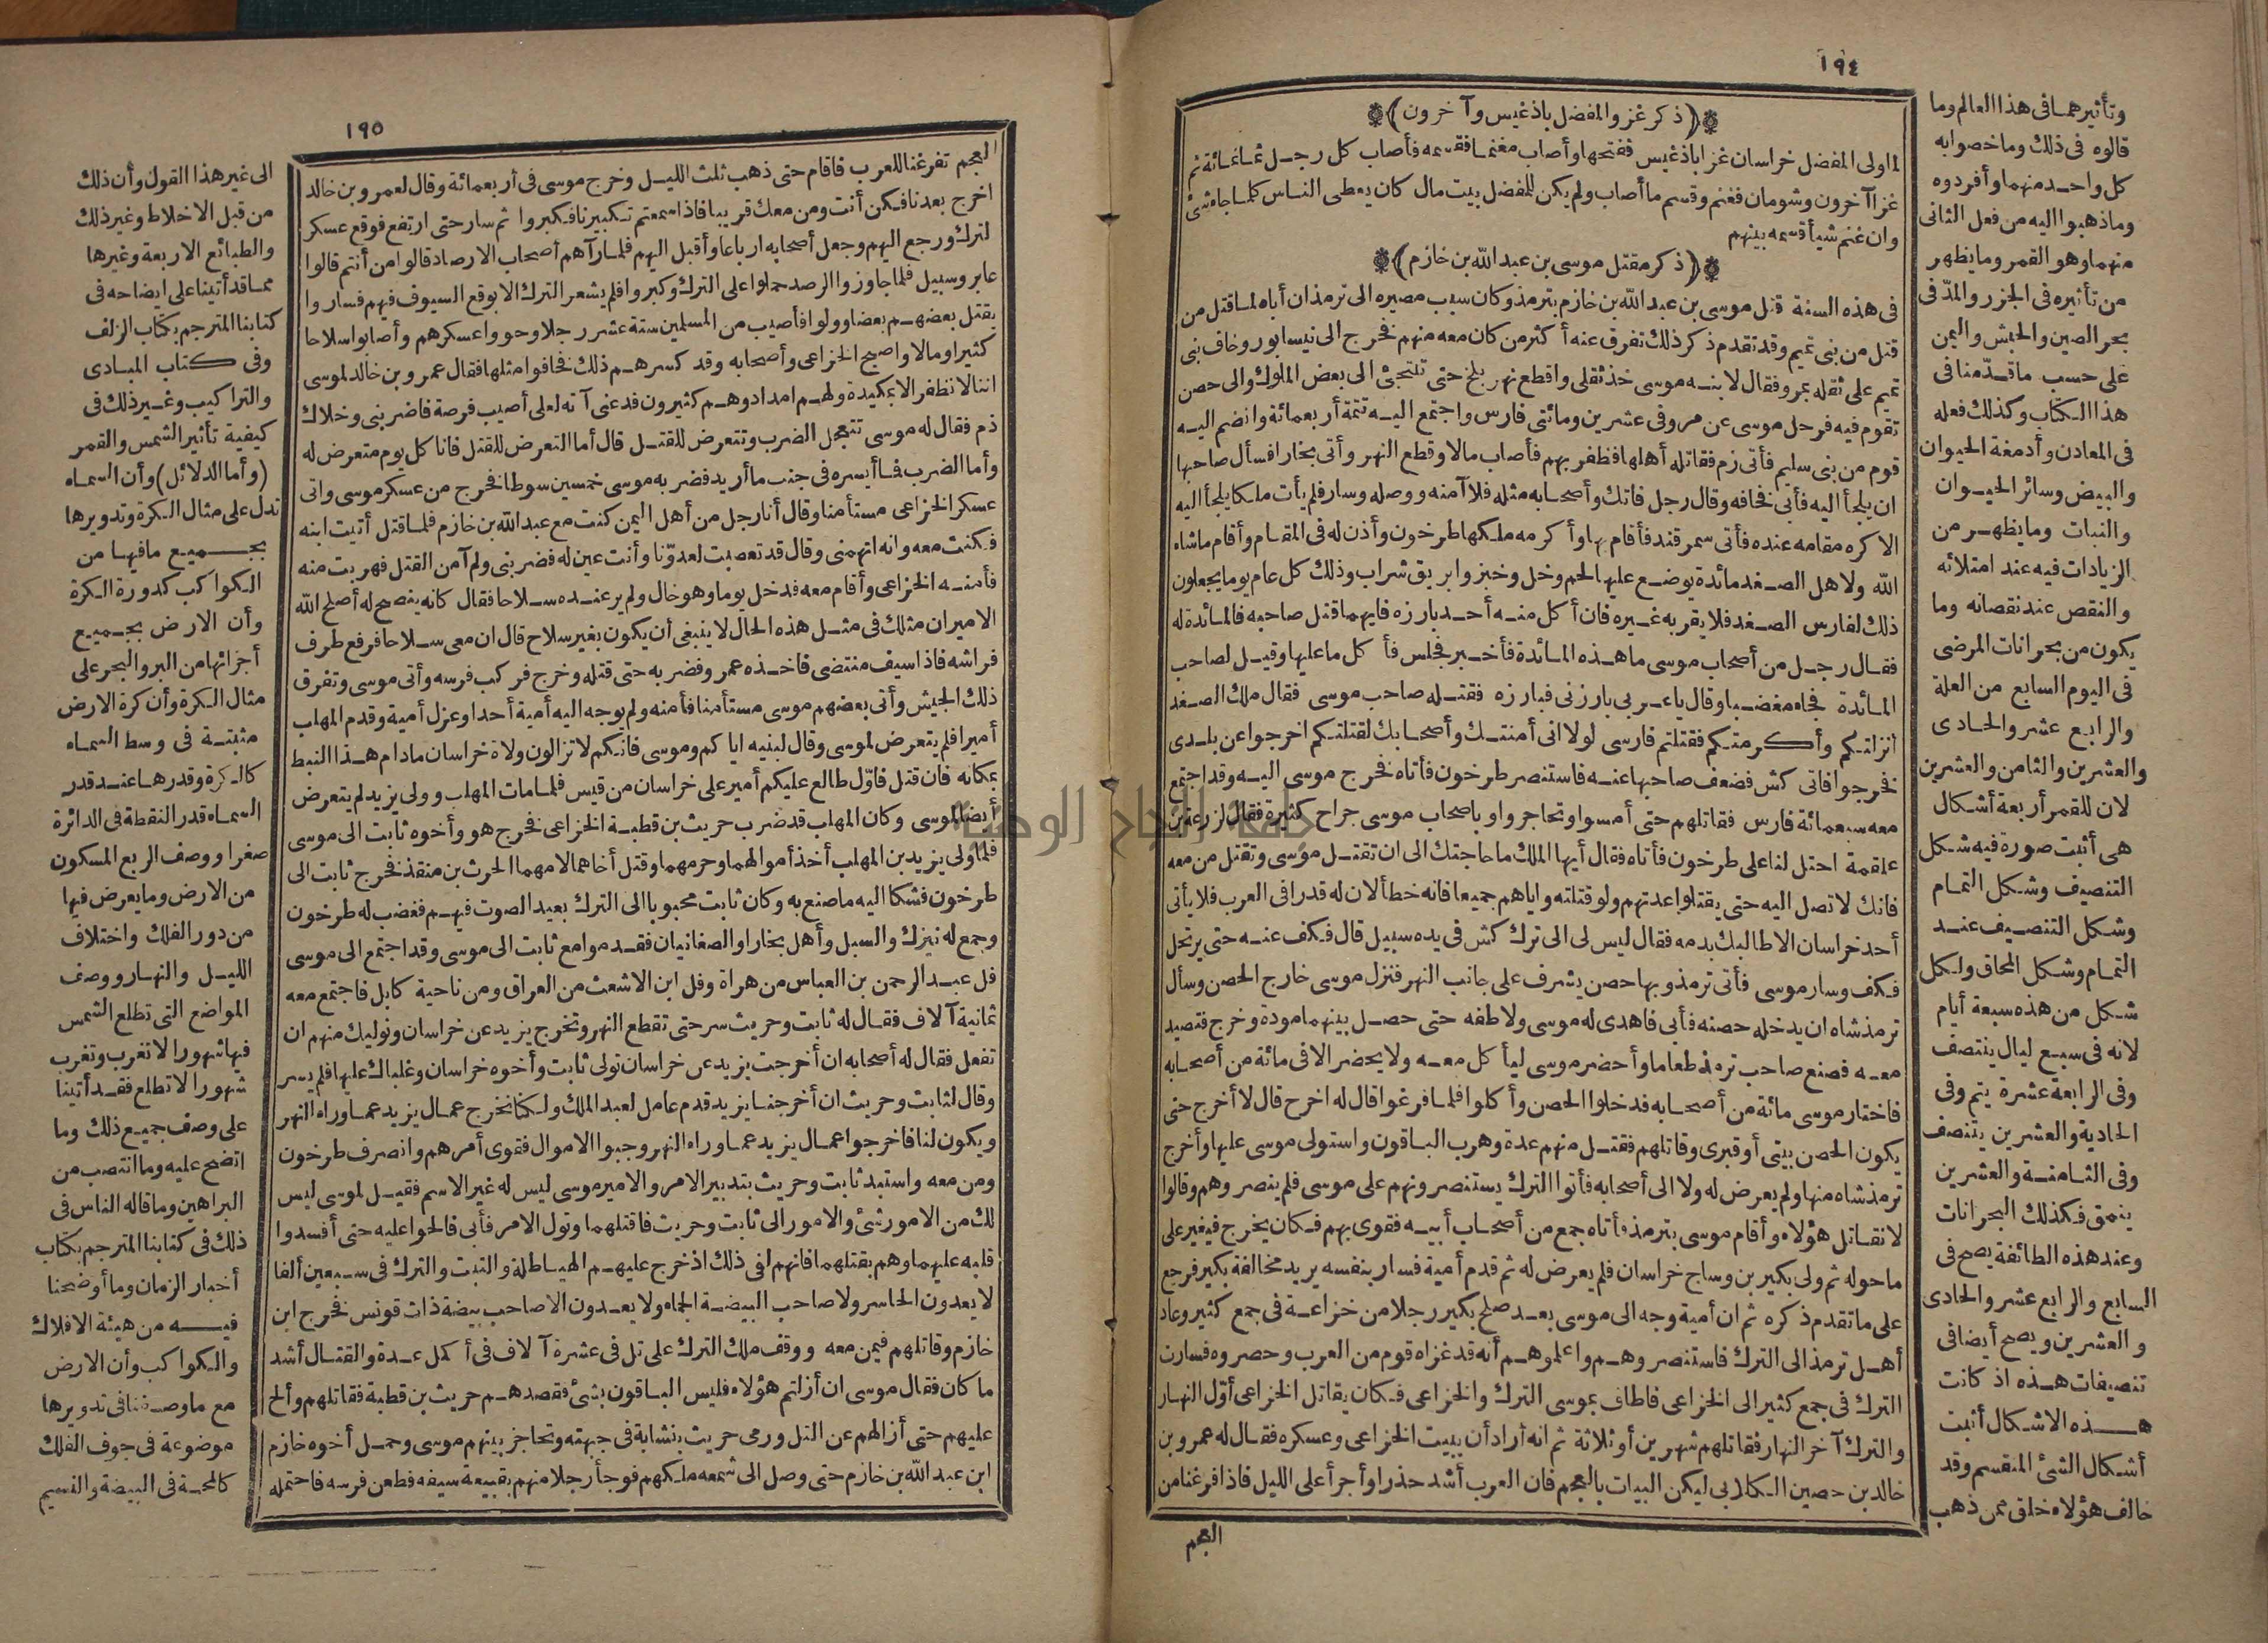 ١٩٤
❁(ذكر غزو المفضل باذغيس وآخرون)❁
لما ولى المفضل خراسان غزا باذغيس ففتحها وأصاب مغنما فقسمه فأصاب كل رجل ثمانمائة ثم
غزا آخرون وشومان فغنم وقسم ما أصاب ولم يكن للمفضل بيت مال كان يعطى الناس كلما جاء شئ
وان غنم شيأ قسمه بينهم
❁(ذكر مقتل موسى بن عبد الله بن خازم)❁
فى هذه السنة قتل موسى بن عبد الله بن خازم بترمذ وكان سبب مصيره الى ترمذ ان أباه لما قتل من
قتل من بنى تميم وقد تقدم ذكر ذلك تفرق عنه أكثر من كان معه منهم فخرج الى نيسابور وخاف بنى
تميم على ثقله بمرو فقال لابنه موسى خذ ثقلى واقطع نهر بلخ حتى تلتجئ الى بعض الملوك والى حصن
تقوم فيه فرحل موسى عن مرو فى عشرين ومائتى فارس واجتمع اليه تتمة أربعمائة وانضم اليه
قوم من بنى سليم فأتى زم فقاتله أهلها فظفر بهم فأصاب مالا وقطع النهر وأتى بخارا فسأل صاحبها
ان يلجأ اليه فأبى فخافه وقال رجل فاتك وأصحابه مثله فلا آمنه ووصله وسار فلم يأت ملكا يلجأ اليه
الا كره مقامه عنده فأتى سمرقند فأقام بها وأكرمه ملكها طرخون وأذن له فى المقام وأقام ماشاء
الله ولاهل الصغد مائدة يوضع عليها لحم وخل وخبز وابريق شراب وذلك كل عام يوما يجعلون
ذلك لفارس الصغد فلا يقربه غيره فان أكل منه أحد بارزه فايهما قتل صاحبه فالمائدة له
فقال رجل من أصحاب موسى ما هذه المائدة فأخبر فجلس فأكل ما عليها وقيل لصاحب
المائدة فجاء مغضبا وقال ياعربى بارزنى فبارزه فقتله صاحب موسى فقال ملك الصغد
أنزلتكم وأكرمتكم فقتلتم فارسى لولا انى أمنتك وأصحابك لقتلتكم اخرجوا عن بلدى
فخرجوا فاتى كش فضعف صاحبها عنه فاستنصر طرخون فأتاه فخرج موسى اليه وقد اجتمع
معه سبعمائة فارس فقاتلهم حتى أمسوا وتحاجزوا وباصحاب موسى جراح كثيرة فقال لزرعة بن
علقمة احتل لنا على طرخون فأتاه فقال أيها الملك ما حاجتك الى ان تقتل موسى وتقتل من معه
فانك لا تصل اليه حتى يقتلوا عدتهم ولو قتلته واياهم جميعا فانه خطأ لان له قدرا فى العرب فلا يأتى
أحد خراسان الا طالبك بدمه فقال ليس لى الى ترك كش فى يده سبيل قال فكف عنه حتى يرتحل
فكف وسار موسى فأتى ترمذ وبها حصن يشرف على جانب النهر فنزل موسى خارج الحصن وسأل
ترمذ شاه ان يدخله حصنه فأبى فاهدى له موسى ولاطفه حتى حصل بينهما مودة وخرج فتصيد
معه فصنع صاحب ترمذ طعاما وأحضر موسى ليأكل معه ولا يحضر الا فى مائة من أصحابه
فاختار موسى مائة من أصحابه فدخلوا الحصن وأكلوا فلما فرغوا قال له اخرج قال لا أخرج حتى
يكون الحصن بيتى أو قبرى وقاتلهم فقتل منهم عدة وهرب الباقون واستولى موسى عليها وأخرج
ترمذ شاه منها ولم يعرض له ولا الى أصحابه فأتوا الترك يستنصرونهم على موسى فلم ينصروهم وقالوا
لا نقاتل هؤلاء وأقام موسى بترمذ فأتاه جمع من أصحاب أبيه فقوى بهم فكان يخرج فيغير على
ما حوله ثم ولى بكير بن وساج خراسان فلم يعرض له ثم قدم أمية فسار بنفسه يريد مخالفة بكير فرجع
على ما تقدم ذكره ثم ان أمية وجه الى موسى بعد صلح بكير رجلا من خزاعة فى جمع كثير وعاد
أهل ترمذ الى الترك فاستنصروهم واعلموهم أنه قد غزاه قوم من العرب وحصروه فسارت
الترك فى جمع كثير الى الخزاعى فاطاف بموسى الترك والخزاعى فكان يقاتل الخزاعى أول النهار
والترك آخر النهار فقاتلهم شهرين أو ثلاثة ثم انه أراد أن يبيت الخزاعى وعسكره فقال له عمرو بن
خالد بن حصين الكلابى ليكن البيات بالعجم فان العرب أشد حذرا وأجرأ على الليل فاذا فرغنا من
العجم
وتأثيرهما فى هذا العالم وما
قالوه فى ذلك وما خصوا به
كل واحد منهما وأفردوه
وما ذهبوا اليه من فعل الثانى
منهما وهو القمر وما يظهر
من تأثيره فى الجزر والمد فى
بحر الصين والحبش واليمن
على حسب ما قدمنا فى
هذا الكتاب وكذلك فعله
فى المعادن وأدمغة الحيوان
والبيض وسائر الحيوان
والنبات وما يظهر من
الزيادات فيه عند امتلائه
والنقص عند نقصانه وما
يكون من بحرانات المرضى
فى اليوم السابع من العلة
والرابع عشر والحادى
والعشرين والثامن والعشرين
لان للقمر أربعة أشكال
هى أثبت صورة فيه شكل
التنصيف وشكل التمام
وشكل التنصيف عند
التمام وشكل المحاق ولكل
شكل من هذه سبعة أيام
لانه فى سبع ليال ينتصف
وفى الرابعة عشرة يتم وفى
الحادية والعشرين ينتصف
وفى الثامنة والعشرين
ينمحق فكذلك البحرانات
وعند هذه الطائفة يصح فى
السابع والرابع عشر والحادى
والعشرين ويصح أيضا فى
تنصيفات هذه اذ كانت
هذه الاشكال أثبت
أشكال الشئ المنقسم وقد
خالف هؤلاء خلق ممن ذهب
١٩٥
العجم تفرغنا للعرب فاقام حتى ذهب ثلث الليل وخرج موسى فى أربعمائة وقال لعمرو بن خالد
اخرج بعدنا فكن أنت ومن معك قريبا فاذا سمعتم تكبيرنا فكبروا ثم سار حتى ارتفع فوق عسكر
لترك ورجع اليهم وجعل أصحابه ارباعا وأقبل اليهم فلما رآهم أصحاب الارصاد قالوا من أنتم قالوا
عابر وسبيل فلما جاوزوا الرصد حملوا على الترك وكبروا فلم يشعر الترك الا بوقع السيوف فيهم فساروا
يقتل بعضهم بعضا وولوا فأصيب من المسلمين ستة عشر رجلا وحووا عسكرهم وأصابوا سلاحا
كثيرا ومالا واصبح الخزاعى وأصحابه وقد كسرهم ذلك فخافوا مثلها فقال عمرو بن خالد لموسى
اننا لا نظفر الا بمكيدة ولهم امداد وهم كثيرون فدعنى آته لعلى أصيب فرصة فاضربنى وخلاك
ذم فقال له موسى تتعجل الضرب وتتعرض للقتل قال أما التعرض للقتل فانا كل يوم متعرض له
وأما الضرب فما أيسره فى جنب ما أريد فضربه موسى خمسين سوطا فخرج من عسكر موسى واتى
عسكر الخزاعى مستأمنا وقال أنا رجل من أهل اليمن كنت مع عبد الله بن خازم فلما قتل أتيت ابنه
فكنت معه وانه اتهمنى وقال قد تعصبت لعدونا وأنت عين له فضربنى ولم آمن القتل فهربت منه
فأمنه الخزاعى وأقام معه فدخل يوما وهو خال ولم ير عنده سلاحا فقال كانه ينصح له أصلح الله
الامير ان مثلك فى مثل هذه الحال لا ينبغى أن يكون بغير سلاح قال ان معى سلاحا فرفع طرف
فراشه فاذا سيف منتضى فاخذه عمرو فضربه حتى قتله وخرج فركب فرسه وأتى موسى وتفرق
ذلك الجيش وأتى بعضهم موسى مستأمنا فأمنه ولم يوجه اليه أمية أحدا وعزل أمية وقدم المهلب
أميرا فلم يتعرض لموسى وقال لبنيه اياكم وموسى فانكم لا تزالون ولاة خراسان مادام هذا النبط
بمكانه فان قتل فأول طالع عليكم أمير على خراسان من قيس فلما مات المهلب وولى يزيد لم يتعرض
أيضا لموسى وكان المهلب قد ضرب حريث بن قطبة الخزاعى فخرج هو وأخوه ثابت الى موسى
فلما ولى يزيد بن المهلب أخذ أموالهما وحرمهما وقتل أخاهما لامهما الحرث بن منقذ فخرج ثابت الى
طرخون فشكا اليه ما صنع به وكان ثابت محبوبا الى الترك بعيد الصوت فيهم فغضب له طرخون
وجمع له نيزك والسبل وأهل بخارا والصغانيان فقدموا مع ثابت الى موسى وقد اجتمع الى موسى
فل عبد الرحمن بن العباس من هراة وفل ابن الاشعث من العراق ومن ناحية كابل فاجتمع معه
ثمانية آلاف فقال له ثابت وحريث سر حتى تقطع النهر وتخرج يزيد عن خراسان ونوليك منهم ان
تفعل فقال له أصحابه ان أخرجت يزيد عن خراسان تولى ثابت وأخوه خراسان وغلباك عليها فلم يسر
وقال لثابت وحريث ان أخرجنا يزيد قدم عامل لعبد الملك ولكنا نخرج عمال يزيد عما وراء النهر
ويكون لنا فاخرجوا عمال يزيد عما وراء النهر وجبوا الاموال فقوى أمرهم وانصرف طرخون
ومن معه واستبد ثابت وحريث بتدبير الامر والامير موسى ليس له غير الاسم فقيل لموسى ليس
لك من الامور شئ والامور الى ثابت وحريث فاقتلهما وتول الامر فأبى فالحوا عليه حتى أفسدوا
قلبه عليهما وهم بقتلهما فانهم لفى ذلك اذ خرج عليهم الهياطلة والتبت والترك فى سبعين ألفا
لا يعدون الحاسر ولا صاحب البيضة الجماء ولا يعدون الا صاحب بيضة ذات قونس فخرج ابن
خازم وقاتلهم فيمن معه ووقف ملك الترك على تل فى عشرة آلاف فى أكمل عدة والقتال أشد
ما كان فقال موسى ان أزلتم هؤلاء فليس الباقون بشئ فقصدهم حريث بن قطبة فقاتلهم وألح
عليهم حتى أزالهم عن التل ورمى حريث بنشابة فى جبهته وتحاجز بينهم موسى وحمل أخوه خازم
ابن عبد الله بن خازم حتى وصل الى شمعه ملكهم فوجأ رجلا منهم بقبيعة سيفه فطعن فرسه فاحتمله
الى غير هذا القول وأن ذلك
من قبل الاخلاط وغير ذلك
والطبائع الاربعة وغيرها
مما قد أتينا على ايضاحه فى
كتابنا المترجم بكتاب الزلف
وفى كتاب المبادى
والتراكيب وغير ذلك فى
كيفية تأثير الشمس والقمر
(وأما الدلائل) وأن السماء
تدل على مثال الكرة وتدويرها
بجميع ما فيها من
الكواكب كدورة الكرة
وأن الارض بجميع
أجزائها من البر والبحر على
مثال الكرة وأن كرة الارض
مثبتة فى وسط السماء
كالكرة وقدرها عند قدر
السماء قدر النقطة فى الدائرة
صغرا ووصف الربع المسكون
من الارض وما يعرض فيها
من دور الفلك واختلاف
الليل والنهار ووصف
المواضع التى تطلع الشمس
فيها شهورا لا تغرب وتغرب
شهورا لا تطلع فقد أتينا
على وصف جميع ذلك وما
اتضح عليه وما انتصب من
البراهين وما قاله الناس فى
ذلك فى كتابنا المترجم بكتاب
أخبار الزمان وما أوضحنا
فيه من هيئة الافلاك
والكواكب وأن الارض
مع ما وصفنا فى تدويرها
موضوعة فى جوف الفلك
كالمحة فى البيضة والنسيم
جامعة النجاح الوطنية